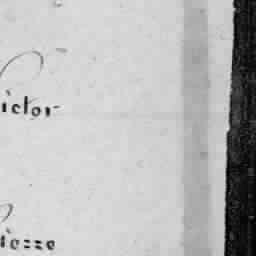 ictor
ierre